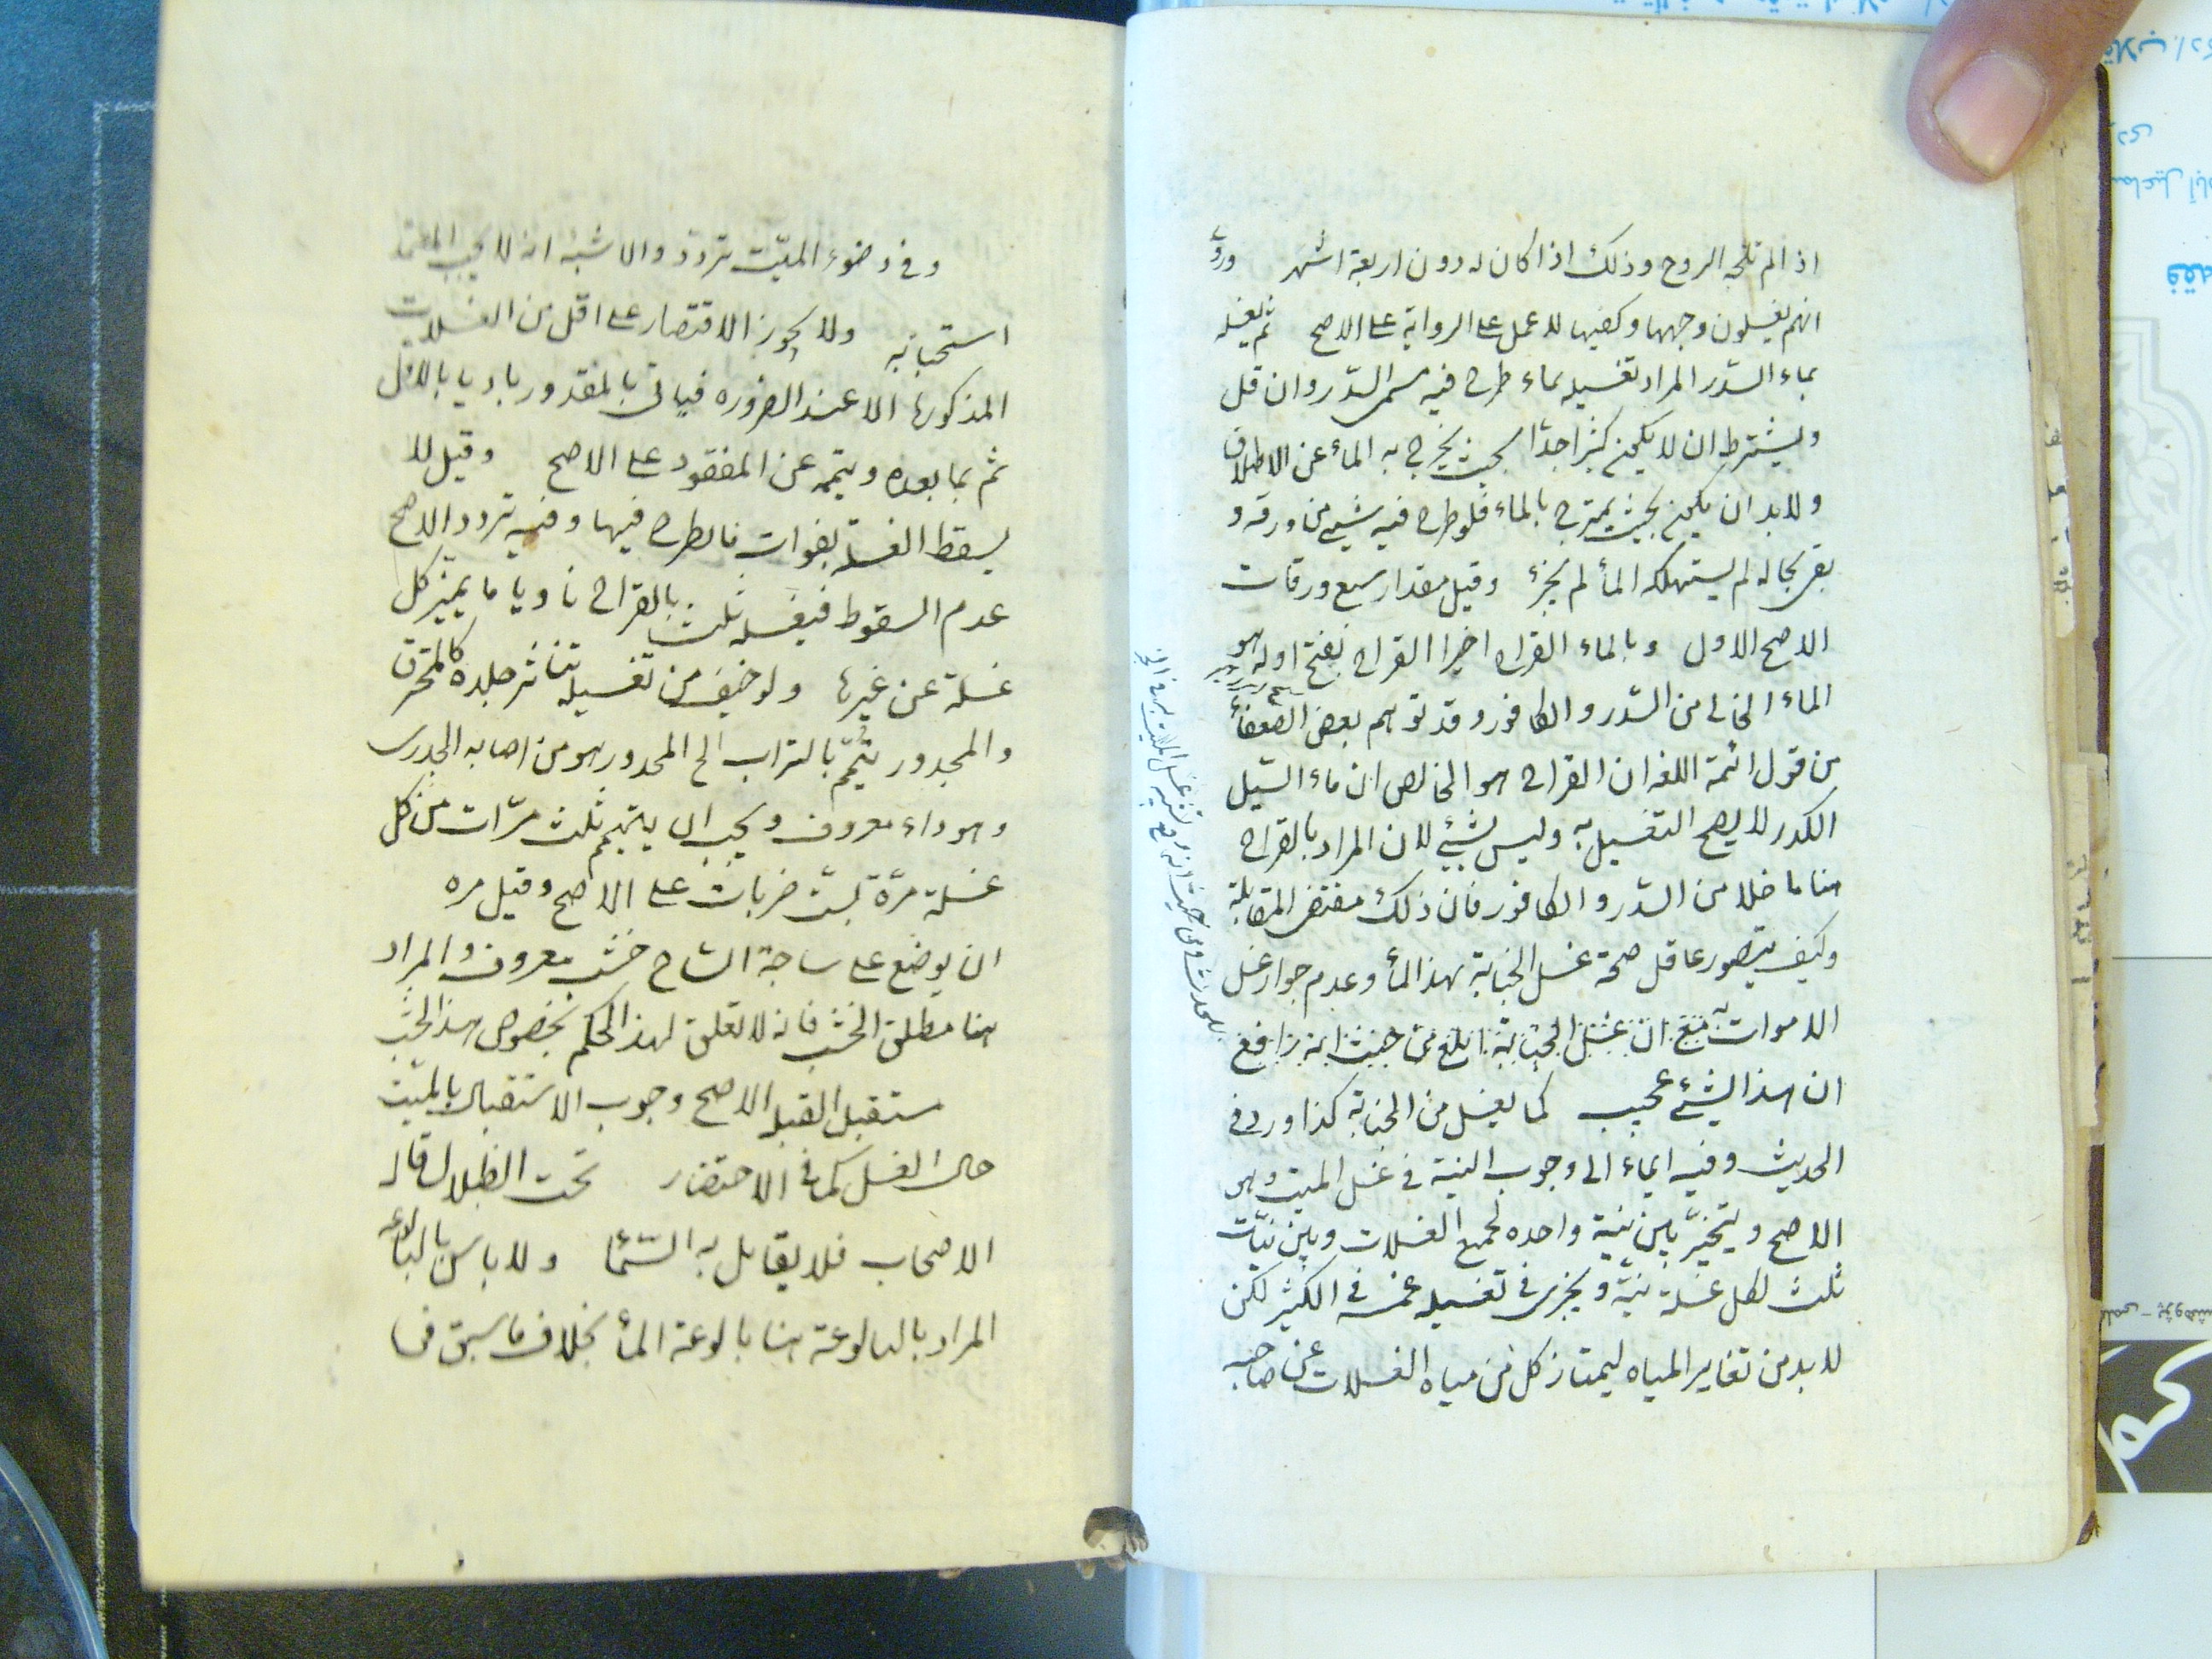 اذا لم تلجه الروح وذلك اذا كان له دون اربعة اشهر وروى
انهم يغسلون وجهها وكفيها لا عمل على الرواية على الاصح ثم يغسله
بماء السّدر المراد تغسيله بماء طرح فيه مسمى السّدر وان قل
ويشترط ان لا يكون كثيرا جدّا بحيث يخرج به الماء عن الاطلاق
ولا بد ان يكون بحيث يمتزج بالماء فلو طرح فيه شيئ من ورقه و
بقى بحاله لم يستهلكه الماء لم يجزء وقيل مقدار سبع ورقات
الاصح الاول وبالماء القراح اخيرا القراح بفتح اوله هو
الماء الخالى من السّدر والكافور وقد توهم بعض الضعفاء
من قول ائمة اللغه ان القراح هو الخالص ان ماء السّيل
الكدر لا يصح التغسيل به وليس بشيئ لان المراد بالقراح
هنا ما خلا من السّدر والكافور فان ذلك مقتضى المقابلة
وكيف يتصور عاقل صحة غسل الجنابة بهذا الماء وعدم جواز غسل
الاموات به مع ان غسل الجنابة ابلغ من حيث انه رافع
ان هذا لشيئ عجيب كما يغسل من الجنابة كذا ورد فى
الحديث وفيه ايماء الى وجوب النية فى غسل الميت وهو
الاصح ويتخيّر بين نية واحده لجميع الغسلات وبين نيّات
ثلث لكل غسلة نيّة ويجزى فى تغسيله غمسه فى الكثير لكن
لا بد من تغاير المياه ليمتاز كل من مياه الغسلات عن صاحبه
وفى وضوء الميّت تردّد والاشبه انه لا يجب المعتمد
استحبابه ولا يجوز الاقتصار على اقل من الغسلات
المذكورة الا عند الضروره فياتى بالمقدور باديا بالاول
ثم بما بعده ويتمه عن المفقود على الاصح وقيل لا
يسقط الغسلة بفوات ما يطرح فيها وفيه تردد الاصح
عدم السقوط فيغسله ثلث بالقراح ناويا ما يميّز كل
غسلة عن غيرها ولو خيف من تغسيله تناثر جلده كالمحترق
والمجدور تيمّم بالتراب الخ المجدور هو من اصابه الجدرى
وهو داء معروف ويجب ان ييمّم ثلث مرّات من كل
غسلة مرّة بست ضربات على الاصح وقيل مره
ان يوضع على ساجة الساج خشب معروف والمراد
هنا مطلق الخشب فانه لا تعلق لهذا الحكم بخصوص هذا الخشب
مستقبل القبله الاصح وجوب الاستقبال بالميّت
حال الغسل كما فى الاحتضار تحت الظلال قاله
الاصحاب فلا يقابل به السّماء ولا باس بالبالوعه
المراد بالبالوعة هنا بالوعة الماء بخلاف ما سبق فى